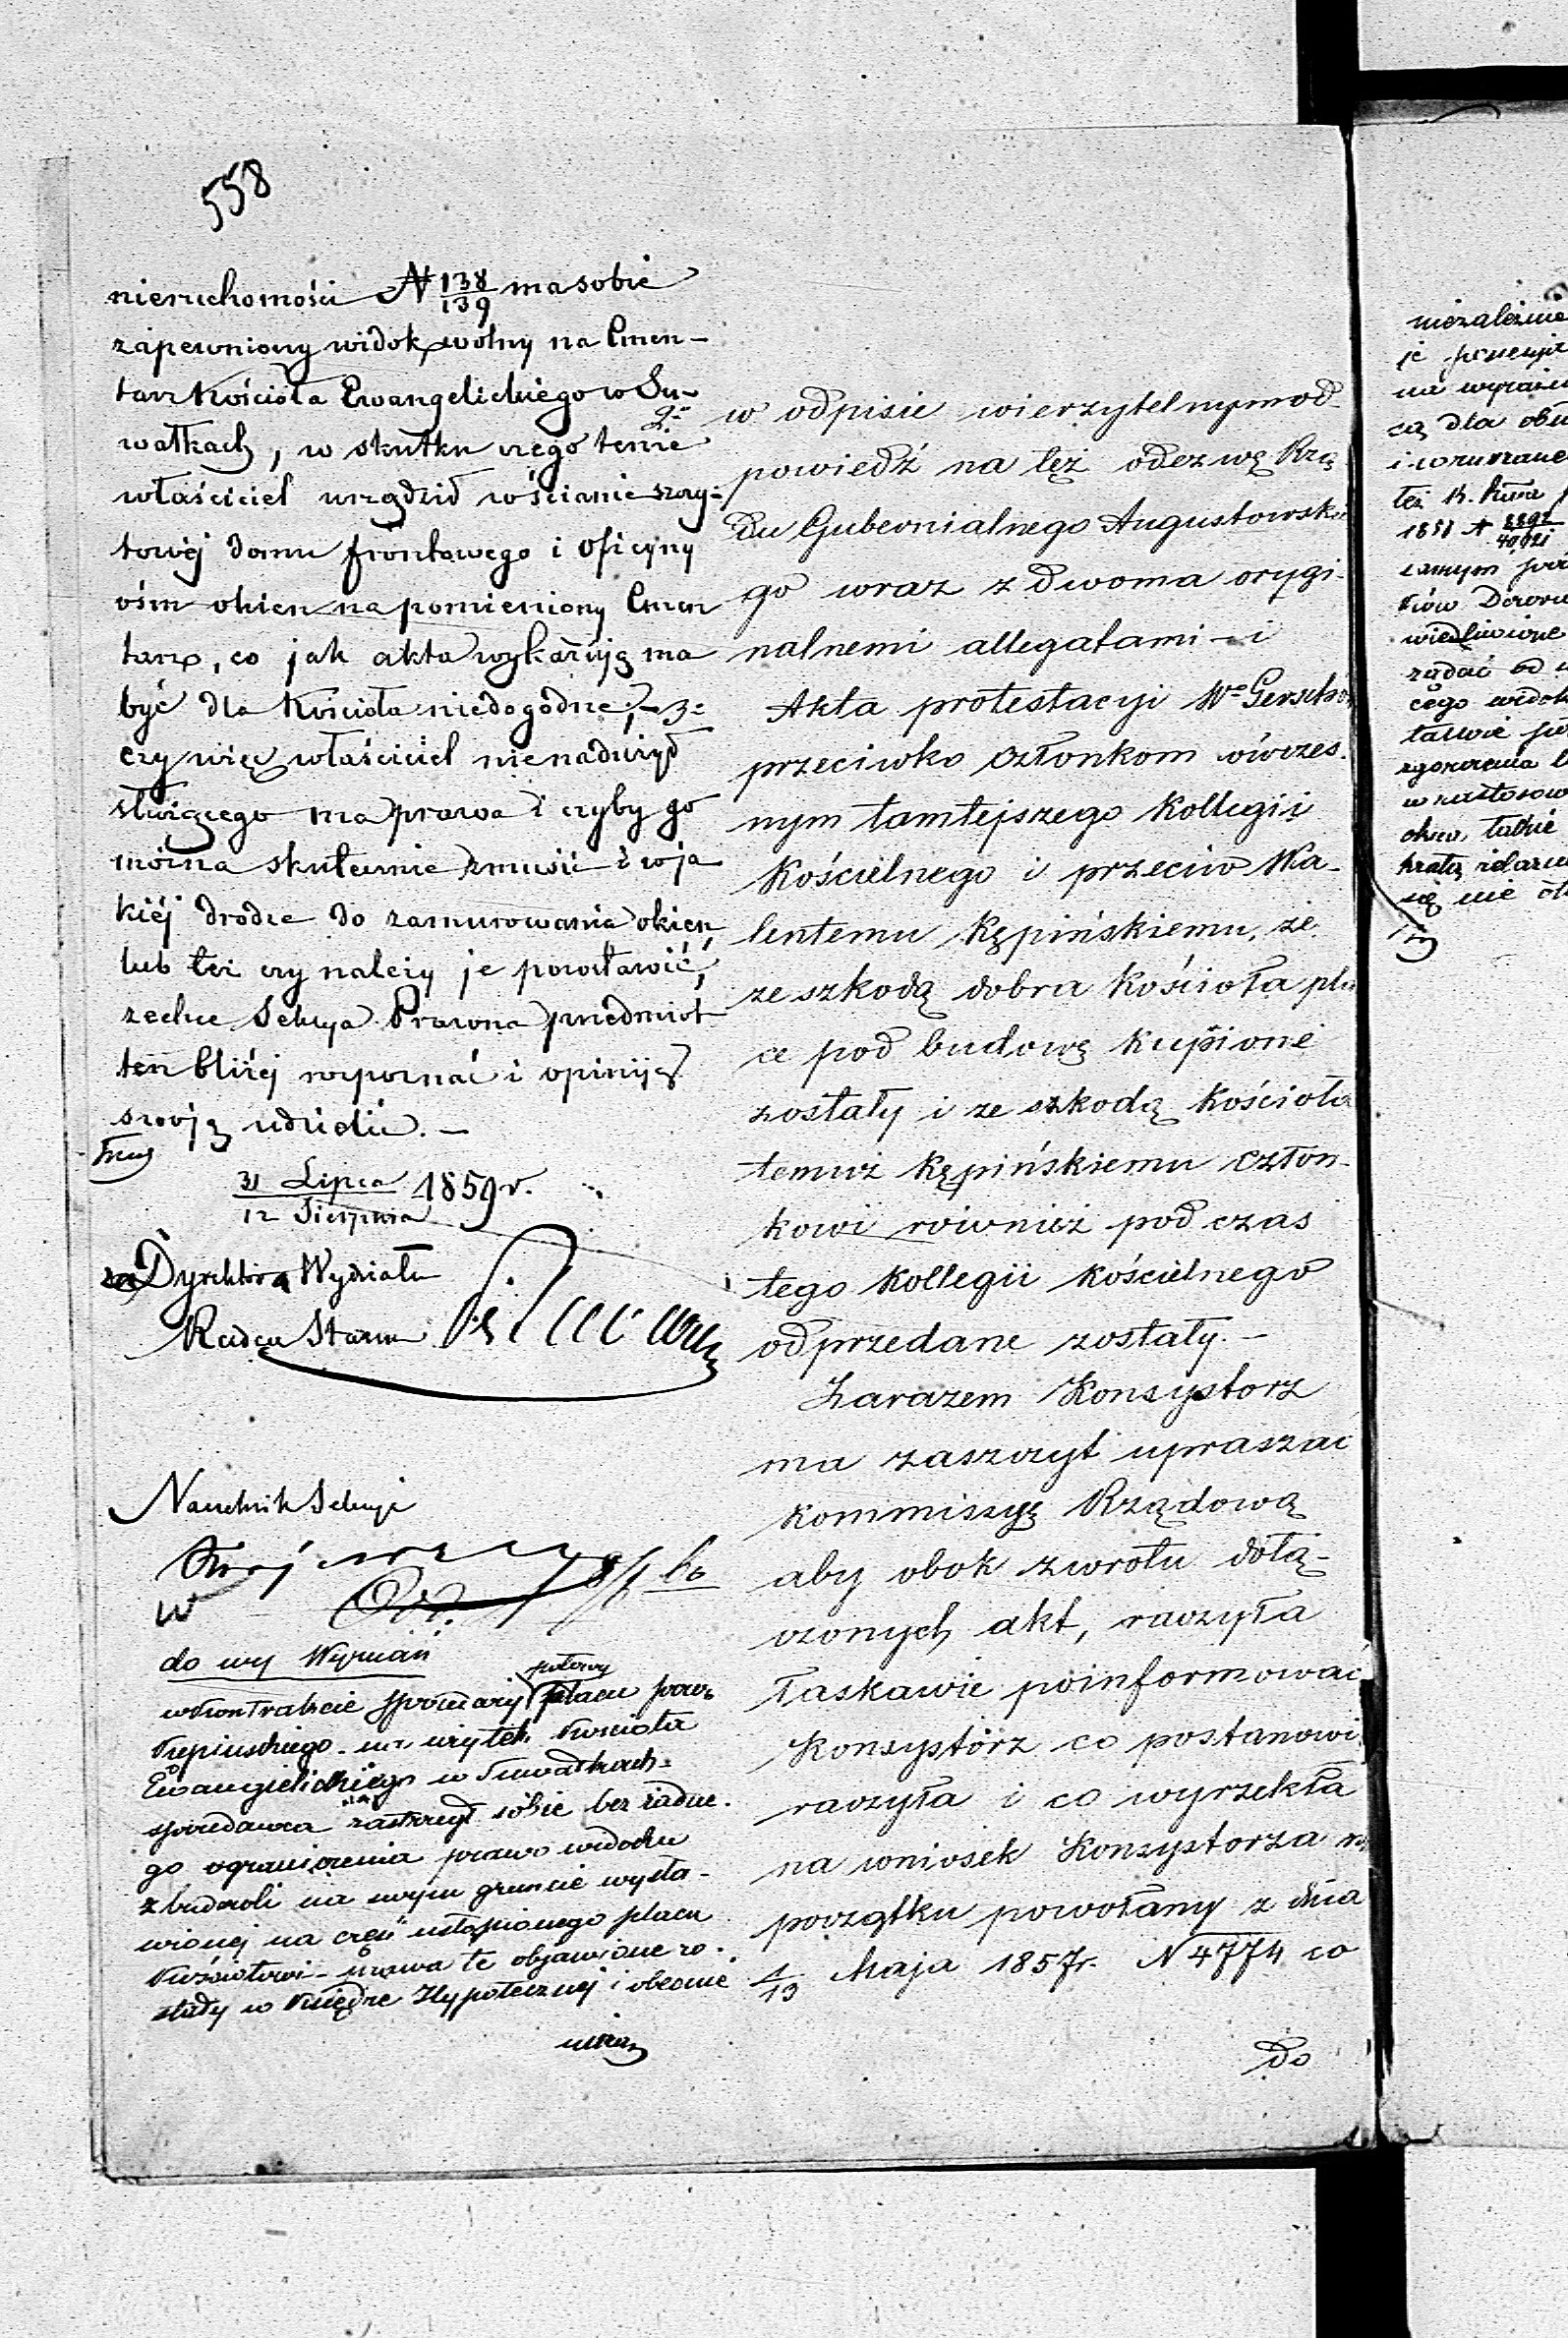 558
nieruchomości N 138/139 ma sobie
zapewniony widok wolny na Cmen-
tarz Kościoła Ewangelickiego w Su-
wałkach, w skutku czego 2e tenże
właściciel urządził w ścianie szczy-
towéj domu frontowego i oficyny
ośm okien na pomieniony Cmen
tarz, co jak akta wykazują ma
być dla Kościoła niedogodne, – 3e
czy więc właściciel nienadużył
służącego mu prawa i czyby go
można skutecznie zmusić i w ja
kiéj drodze do zamurowania okien,
lub też czy należy je pozostawić,
zechce Sekcya Prawna przedmiot
ten bliżéj rozpoznać i opiniję
swoją udzielić. –
31 Lipca / 12 Sierpnia 1859 r.
za Dyrektora Wydziału
Radca Stanu
Naczelnik Sekcyi
do wy
w kontrakcie sprzedaży połowy placu przez
Kępińskiego na użytek Kościoła
Ewangielickiego w Suwałkach
sprzedawca zastrzegł sobie bez żadne-
go ograniczenia prawo widoku
z budowli na swym gruncie wysta-
wionej na część ustąpionego placu
Kościołowi – prawa te objawione zo-
stały w Księdze Hypotecznej i obecnie
w odpisie wierzytelnym od-
powiedź na tęż odezwę Rzą
du Gubernialnego Augustowskie
go wraz z dwoma orygi-
nalnemi allegatami – i
Akta protestacyi We Gersch
przeciwko członkom ówczes-
nym tamtejszego Kollegii
Kościelnego i przeciw Wa-
lentemu Kępińskiemu, że
ze szkodą dobra Kościoła pla
ce pod budowę kupione
zostały i ze szkodą Kościoła
temuż Kępińskiemu człon-
kowi również pod czas
tego Kollegii Kościelnego
odprzedane zostały. –
Zarazem Konsystorz
ma zaszczyt upraszać
Kommissyę Rządową
aby obok zwrotu dołą-
czonych akt, raczyła
łaskawie poinformować
Konsystorz co postanowi
raczyła i co wyrzekła
na wniosek Konsystorza na
początku powołany z dnia
1/13 Maja 1857 r. N 4774 co
do
niezależnie
je
na
cą dla obu
i wzruszane
też K.
1851 N
samym
ków
żądać od
cego widok
okna, takie
kratą
się nie